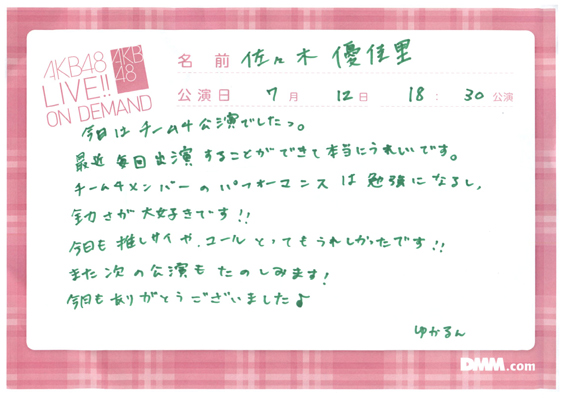 AKB48
LIVE!!
ON DEMAND
AKB
48
名前 佐々木 優佳里
公演日 7月 12日 18:30公演
今日は チーム4公演でしたっ。
最近 毎回出演 することができて本当にうれしいです。
チーム4メンバーのパフォーマンスは勉強になるし、
さが大好きです!!
今日も推しサイや、コールとってもうれしかったです!!
また次の公演もたのしみます!
今日もありがとうございました♪
ゆかるん
DMM.com